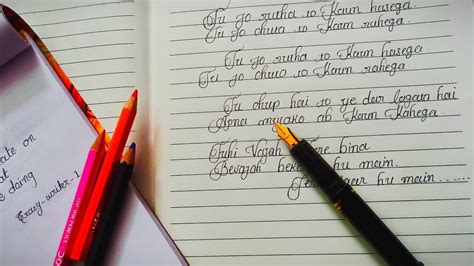 Tu jo rutha to Kaun hasega
Tu jo chuta to Kaun rahega.
Tu jo rutha to Kaun hasega
Tu jo chuto to Kaun rahega
Tu chup hai to ye dar lagata hai
Apna ab Kaun Kahega.
Tuhi Vajah bina
Bewajah hu main.
hu main......
ate on
at
e doing